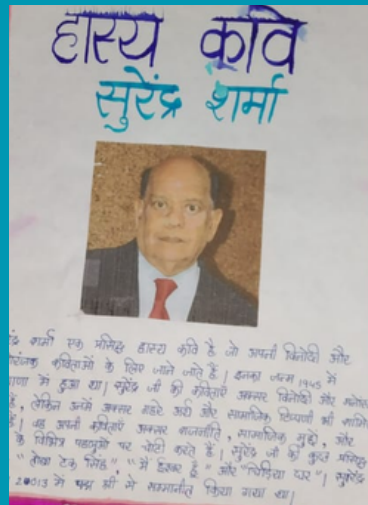 हास्य कवि
सुरेंद्र शर्मा
शर्मा एक प्रसिद्ध हास्य कवि है जो अपनी विनोदी और
कविताओं के लिए जाने जाते है | इनका जन्म 1945 में
में हुआ था | सुरेंद्र जी की कविताएँ अक्सर विनोदी और
है, लेकिन उनमें अक्सर गहरे अर्थ और सामाजिक टिप्पणी भी
है | वह अपनी कविताएँ अक्सर राजनीति, सामाजिक मुद्दे, और
के विभिन्न पहलुओं पर चोट करते है | सुरेंद्र जी की कुछ प्रसिद्ध
टेक सिंह", "में ईश्वर है" और "चिड़िया घर" | सुरेंद्र
20013 में पद्म श्री से सम्मानीत किया गया था |